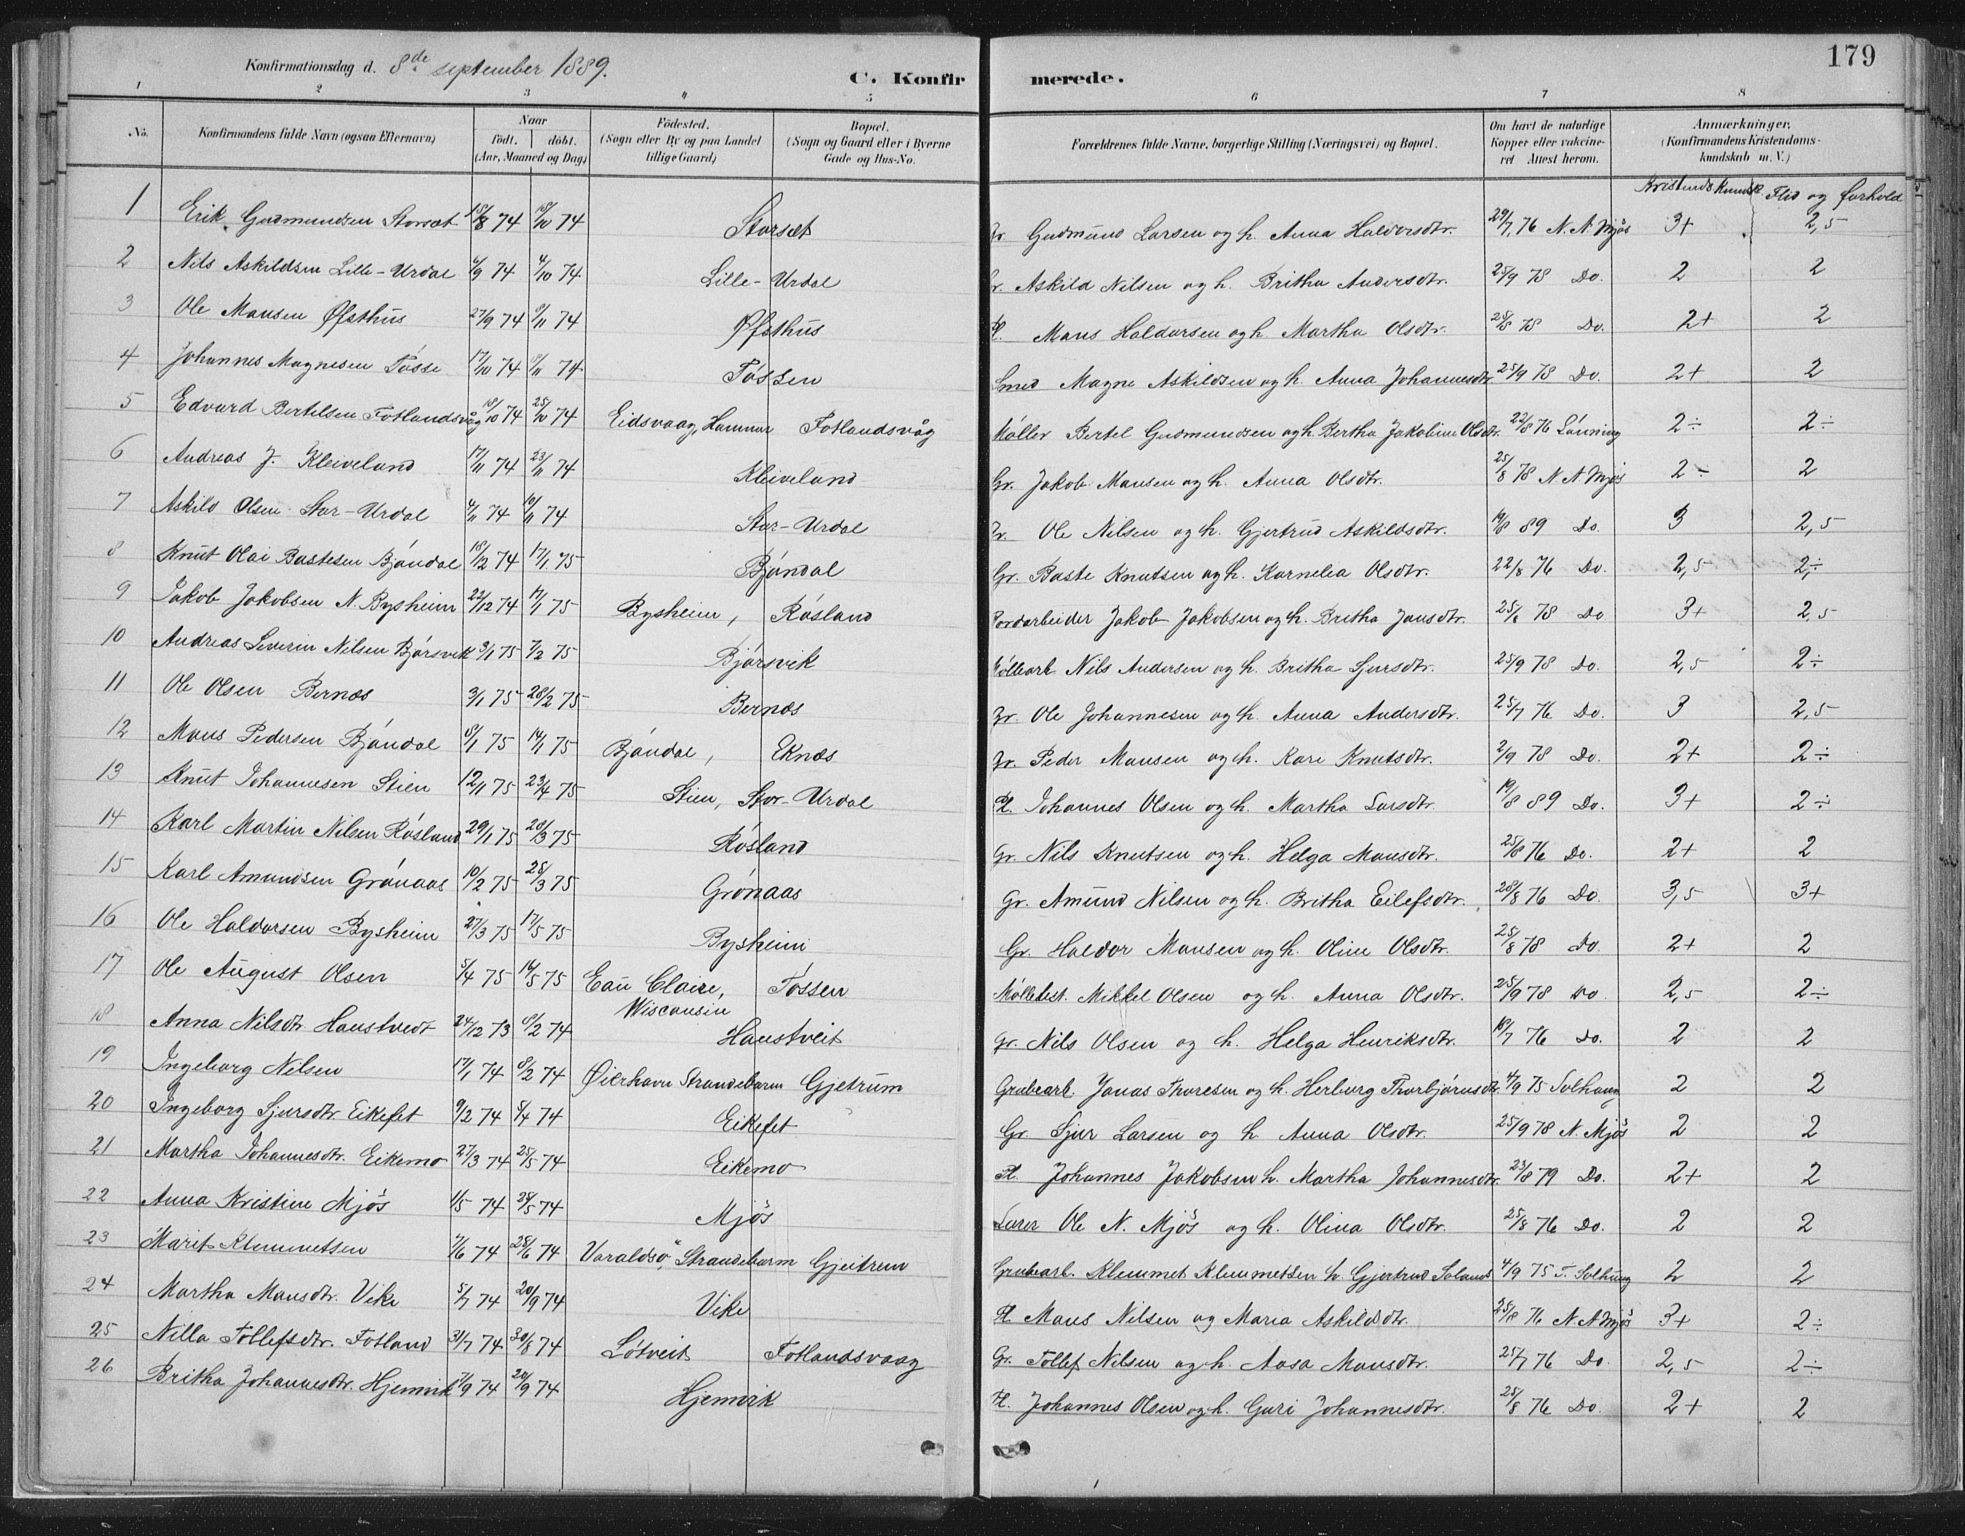 179
Konfirmationsdag d. 8de september 1889.
C. Konfirmerede.
1 2 3 4 5 6 7 8
No. Konfirmandens fulde Navn (ogsaa Efternavn) Naar født. døbt. (Aar, Maaned og Dag) Fødested. (Sogn eller By og paa Landet tillige Gaard) Bopæl. (Sogn og Gaard eller i Byerne Gade og Hus-No. Forældrenes fulde Navne, borgerlige Stilling (Næringsvei) og Bopæl. Om havt de naturlige Kopper eller vakcineret Attest herom. Anmærkninger. (Konfirmandens Kristendomskundskab m. V.)
KristendsKundsk. Flid og forhold
1 Erik Gudmundsen Storsæt 15/8 74 18/10 74 Storsæt Gr Gudmund Larsen og h. Anna Haldorsdtr. 29/7 76 N. A. Mjøs 3+ 2,5
2 Nils Askildsen Lille-Urdal 4/9 74 4/10 74 Lille-Urdal Gr. Askild Nilsen og h. Britha Andersdtr. 25/9 78 Do. 2 2
3 Ole Mansen Øfsthus 27/9 74 8/11 74 Øfsthus Pl. Mans Haldorsen og h. Martha Olsdtr. 25/8 78 Do. 2+ 2
4 Johannes Magnesen Tósse 17/10 74 /11 74 Tóssen Smed Magne Askildsen og h. Anna Johannesdtr 25/9 78 Do. 2+ 2
5 Edvard Bertelsen Fotlandsvåg 10/10 74 25/10 74 Eidsvaag, Hammer Fotlandsvåg Møller Bertel Gudmundsen og h. Bertha Jakobine Olsdtr. 22/8 76 Lónning 2÷ 2÷
6 Andreas J. Kleiveland 17/11 74 23/11 74 Kleiveland Gr. Jakob Mansen og h. Anna Olsdtr. 25/8 78 N A Mjøs 2- 2
7 Askild Olsen Stor-Urdal 4/11 74 10/11 74 Stor-Urdal Gr. Ole Nilsen og h. Gjertrud Askildsdtr. 19/8 89 Do. 3 2,5
8 Knut Olai Bastesen Bjóndal 18/12 74 17/1 75 Bjóndal Gr. Baste Knutsen og h. Kornelia Olsdtr. 22/8 76 Do. 2,5 2÷
9 Jakob Jakobsen N. Bysheim 22/12 74 17/1 75 Bysheim, Rósland Jordarbeider Jakob Jakobsen og h. Britha Jansdtr. 25/8 78 Do 3+ 2,5
10 Andreas Severin Nilsen Bjórsvik 3/1 75 7/2 75 Bjórsvik Møllearb. Nils Andersen og h. Britha Sjursdtr. 25/9 78 Do. 2,5 2÷
11 Ole Olsen Bernæs 3/1 75 28/2 75 Bernæs Gr. Ole Johannesen og h. Anna Andersdtr. 25/7 76 Do. 3 2,5
12 Mons Pedersen Bjóndal 8/1 75 14/1 75 Bjóndal, Eknæs Gr. Peder Mansen og h. Kari Knutsdtr. 2/9 78 Do. 2+ 2÷
13 Knut Johannesen Stien 12/1 75 23/4 75 Stien, Stor-Urdal Pl. Johannes Olsen og h. Martha Larsdtr. 19/8 89 Do. 3+ 2÷
14 Karl Martin Nilsen Rósland 29/1 75 28/3 75 Rósland Gr. Nils Knutsen og h. Helga Mansdtr. 25/8 76 Do. 2+ 2
15 Karl Amundsen Grónaas 10/2 75 28/3 75 Grónaas Gr. Amund Nilsen og h. Britha Eilefsdtr. 28/8 76 Do. 3,5 3+
16 Ole Haldorsen Bysheim 27/3 75 17/5 75 Bysheim Gr. Haldor Mansen og h. Oline Olsdtr. 25/8 78 Do. 2+ 2
17 Ole August Olsen 5/4 75 16/5 75 Eau Claire, Wisconsin Tóssen Mikkel Olsen og h. Anna Olsdtr. 25/9 78 Do 2,5 2÷
18 Anna Nilsdtr. Haustvedt 24/12 73 8/2 74 Haustveit Gr. Nils Olsen og h. Helga Henriksdtr. 19/7 76 Do. 2 2
19 Ingeborg Nelsen 17/1 74 8/2 74 Øierhavn Strandebarm Gjetrum Grubearb. Jonas Thoresen og h. Herborg Thorbjórnsdtr. 4/9 75 Solhaug 2 2
20 Ingeborg Sjursdtr. Eikefet 9/2 74 5/4 74 Eikefet Gr. Sjur Larsen og h Anna Olsdtr. 25/9 78 N. Mjøs 2 2
21 Martha Johannesdtr. Eikemo 27/3 74 25/5 74 Eikemo Pl. Johannes Jakobsen h. Martha Johannesdtr. 23/8 79 Do. 2+ 2
22 Anna Kristine Mjøs 1/5 74 25/5 74 Mjøs Lærer Ole N. Mjøs og h. Olina Olsdtr. 25/8 76 Do. 2 2
23 Marit Klemmetsen 7/6 74 28/6 74 Varaldsö, Strandebarm Gjeitrem Grubearb. Klemmet Klemmetsen h. Gjertrud 4/9 75 T. Solhaug 2 2
24 Martha Mansdtr. Vike 5/7 74 20/9 74 Vike Pl. Mans Nilsen og Maria Askildsdtr. 25/8 76 N A Mjøs 3+ 2÷
25 Nilla Tollefsdtr. Fotland 31/7 74 30/8 74 Lótveit Fotlandsvaag Gr. Tollef Nilsen og h. Aasa Mansdtr. 25/7 76 Do. 2,5 2÷
26 Britha Johannesdtr. Hjemvik 17/9 74 20/9 74 Hjemvik Pl. Johannes Olsen og h. Guri Johannesdtr. 25/8 76 Do. 2+ 2